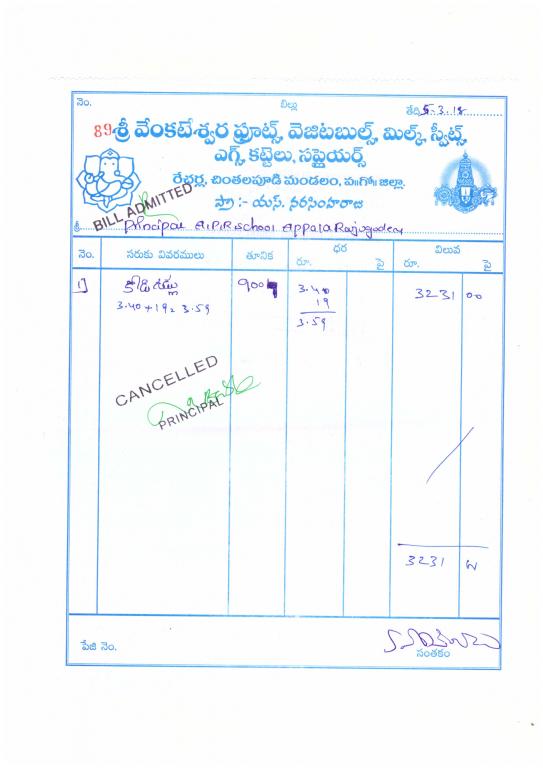 నెం. బిల్లు తేది 5.3.18
89 శ్రీ వేంకటేశ్వర ఫ్రూట్స్, వెజిటబుల్స్, మిల్క్, స్వీట్స్,
ఎగ్స్, కట్టెలు, సప్లైయర్స్
రేచర్ల, చింతలపూడి మండలం, ప॥గో॥ జిల్లా.
ప్రొ :- యస్. నరసింహరాజు
BILL ADMITTED
శ్రీ Principal A.P.R.school Appala Rajugudem
నెం. సరుకు వివరములు తూనిక ధర విలువ
రూ. పై రూ. పై
1] కోడిగుడ్లు 900 3.40 3231 00
3.40 + 19 = 3.59 19
3.59
CANCELLED
PRINCIPAL
3231
పేజి నెం. సంతకం